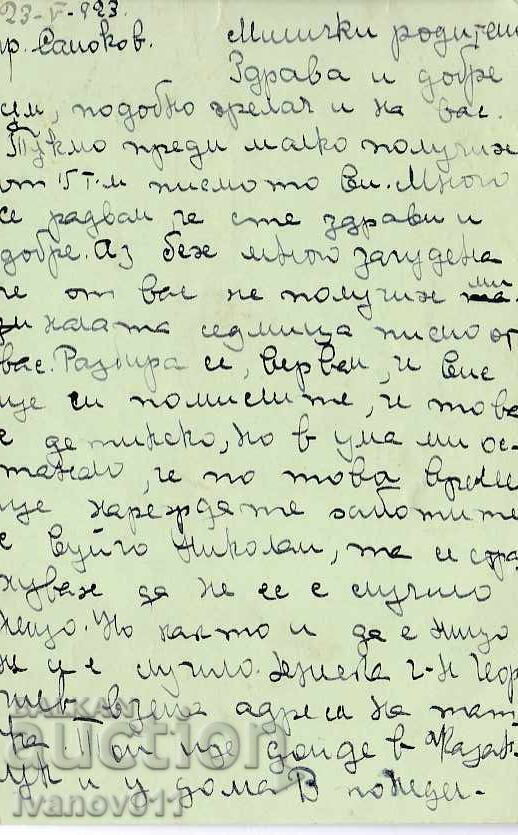 23-V-923
гр. Самоков. Милички родители
Здрава и добре
съм, подобно желая и на вас.
Тъкмо преди малко получих
от 15т.м писмото Ви. Много
се радвам че сте здрави и
добре. Аз бех много зачудена
че от вас не получих ми
налата седмица писмо от
вас. Разбира се, вервам, и Вие
ще си помислите, че това
е детинско, но в ума ми ос
танало, че по това време
ще нареждате работите
с Вуйчо Николай, та и стра
хувах да не се е случило
нещо. Но както и да е нищо
не се е случило. г-н Геор
гиев взема адреса на тат
ка Той ще дойде в Казан
лък и у дома В понед.-
BALKAN
auction
Ivanov911